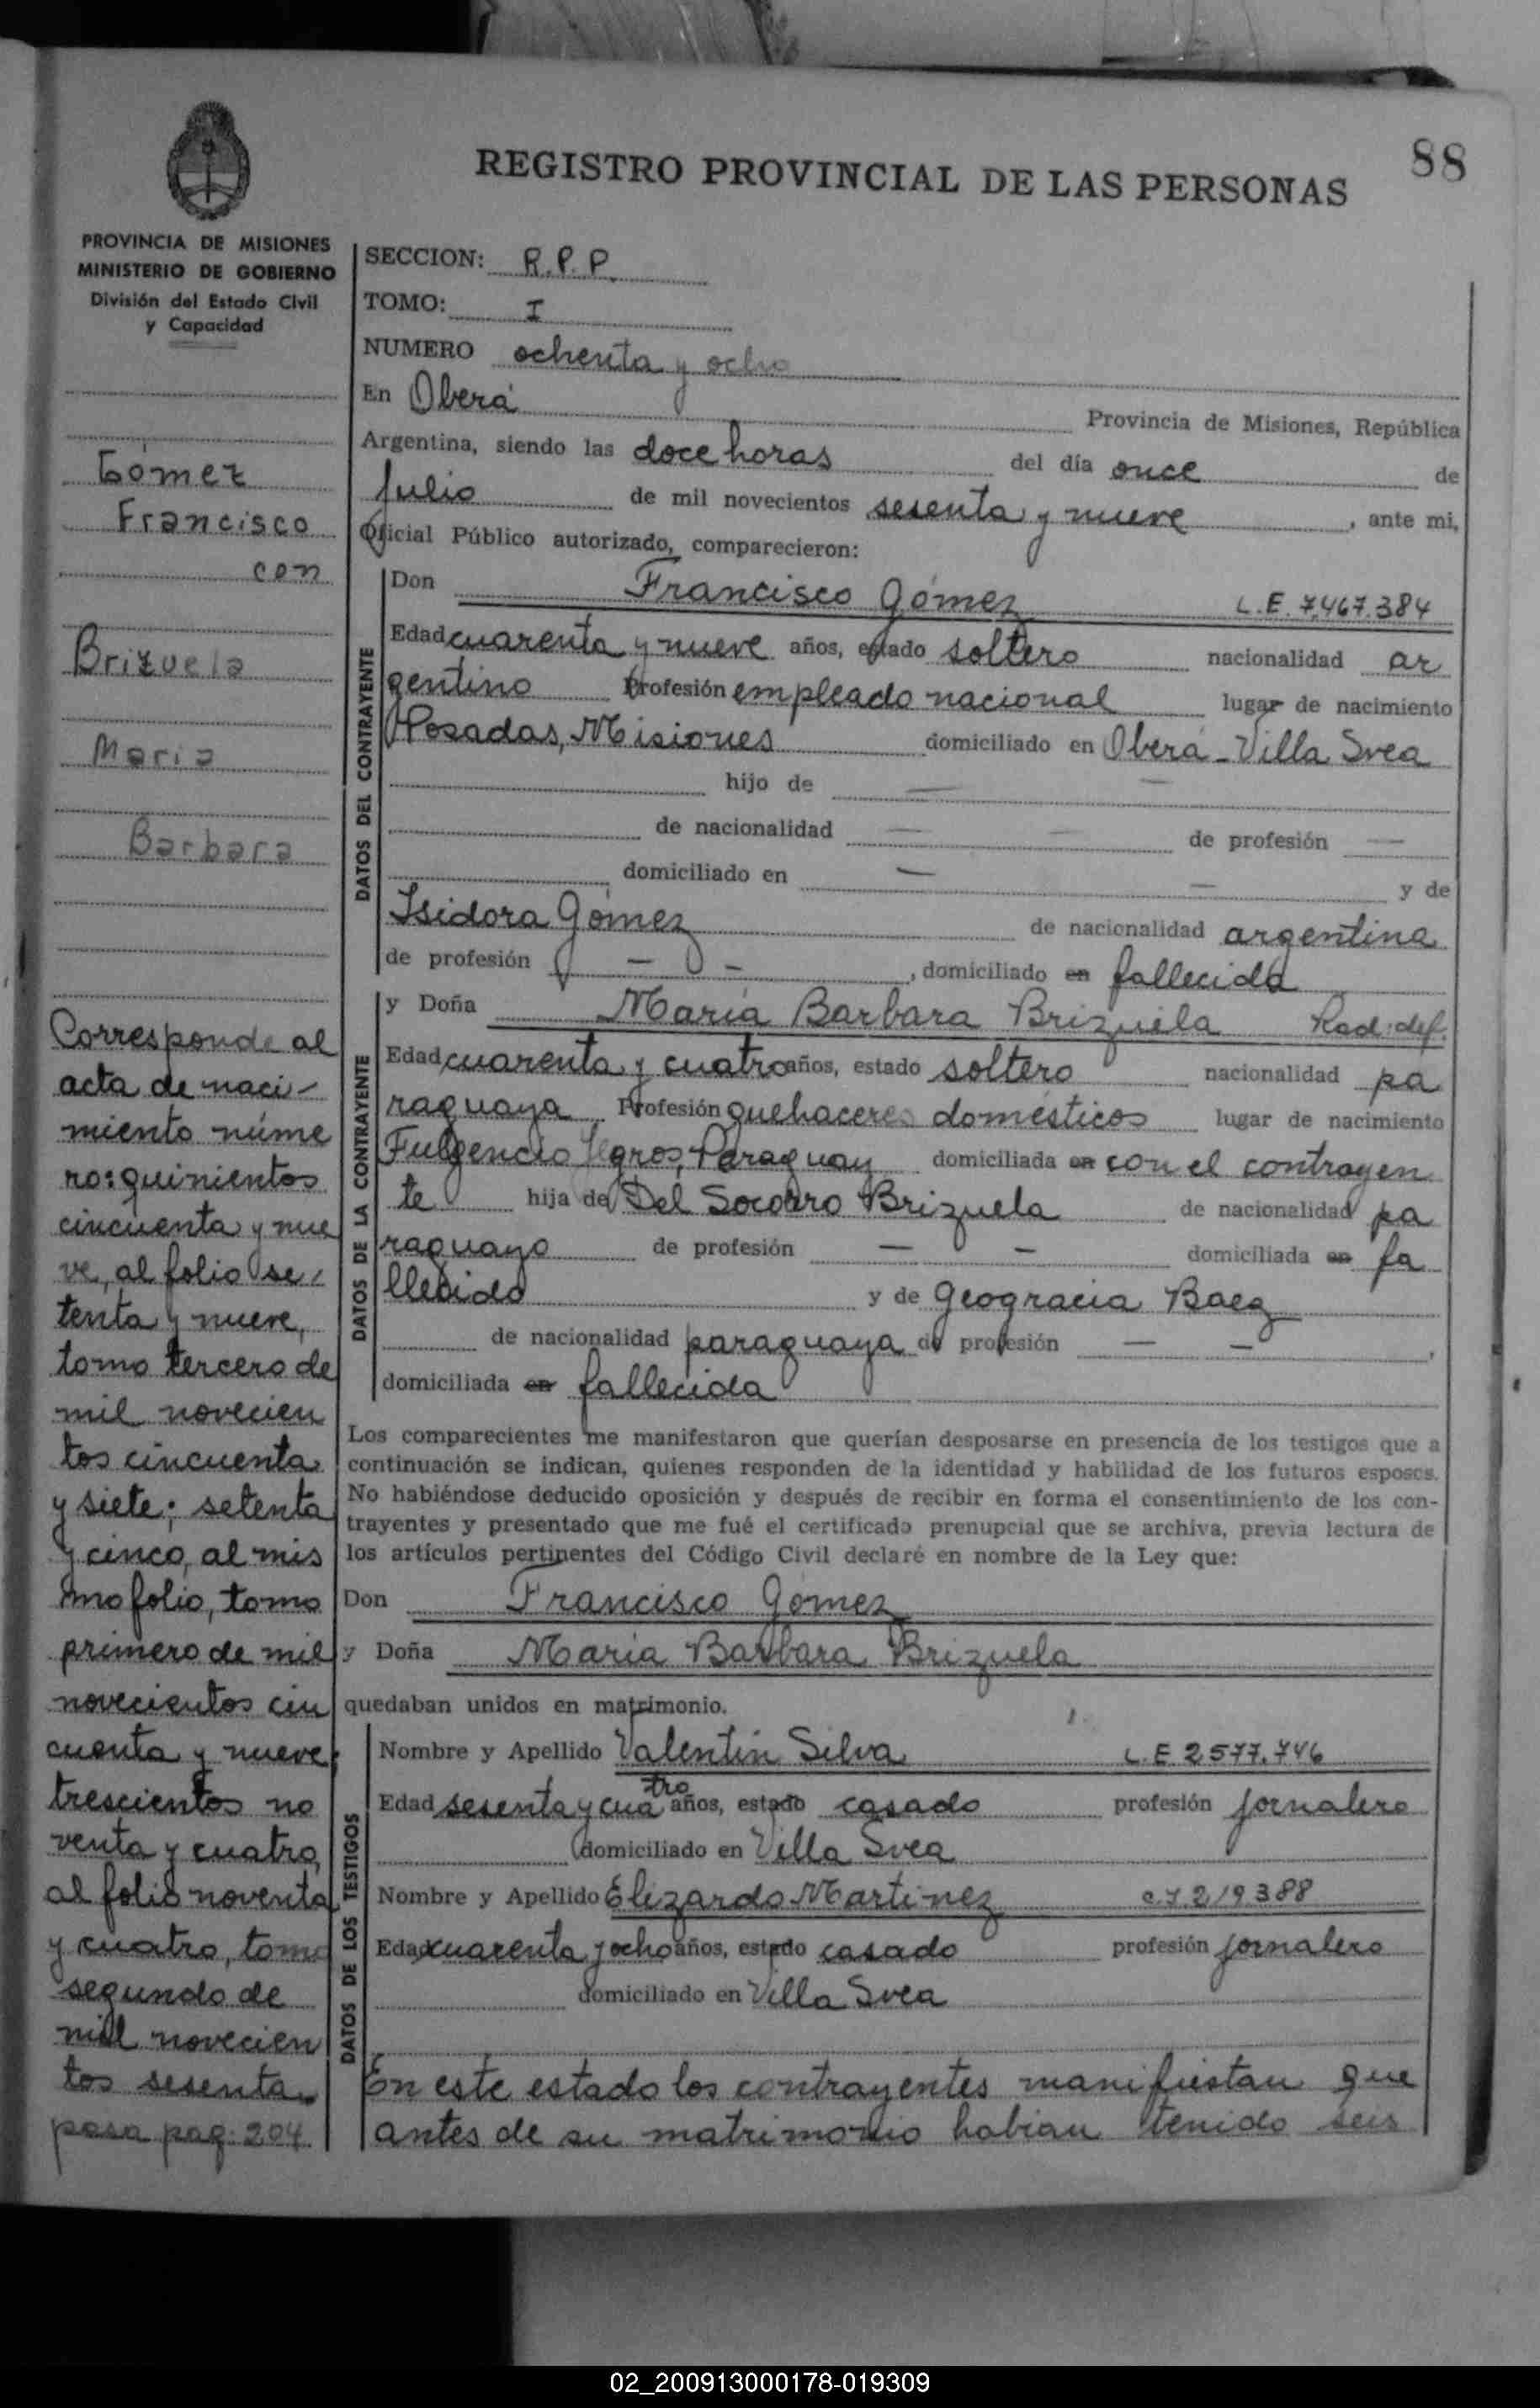 88
REGISTRO PROVINCIAL DE LAS PERSONAS
PROVINCIA DE MISIONES
MINISTERIO DE GOBIERNO
División del Estado Civil
y Capacidad
Gómez
Francisco
con
Brizuela
Maria
Barbara
Corresponde al
acta de naci-
miento núme
ro: quinientos
cincuenta y nue
ve, al folio se-
tenta y nueve,
tomo tercero de
mil novecien
tos cincuenta
y siete; setenta
y cinco, al mis
mo folio, tomo
primero de mil
novecientos cin
cuenta y nueve;
trescientos no
venta y cuatro,
al folio noventa
y cuatro, tomo
segundo de
mil novecien
tos sesenta.
pasa pag. 204
SECCION: R.P.P.
TOMO: I
NUMERO ochenta y ocho
En Oberá Provincia de Misiones, República
Argentina, siendo las doce horas del día once de
Julio de mil novecientos sesenta y nueve, ante mi,
Oficial Público autorizado, comparecieron:
DATOS DEL CONTRAYENTE
Don Francisco Gómez L.E. 7.467.384
Edad cuarenta y nueve años, estado soltero nacionalidad ar
gentino Profesión empleado nacional lugar de nacimiento
Posadas, Misiones domiciliado en Oberá - Villa Svea
hijo de — —
de nacionalidad — — de profesión —
domiciliado en — — y de
Isidora Gómez de nacionalidad argentina
de profesión — -, domiciliado en fallecida
DATOS DE LA CONTRAYENTE
y Doña María Barbara Brizuela Rad: def.
Edad cuarenta y cuatro años, estado soltero nacionalidad pa
raguaya Profesión quehaceres domésticos lugar de nacimiento
Fulgencio Yegros, Paraguay domiciliada en con el contrayen
te hija de Del Socorro Brizuela de nacionalidad pa
raguayo de profesión — — domiciliada en fa
llecido y de Geogracia Baez
de nacionalidad paraguaya de profesión — —,
domiciliada en fallecida
Los comparecientes me manifestaron que querían desposarse en presencia de los testigos que a
continuación se indican, quienes responden de la identidad y habilidad de los futuros esposos.
No habiéndose deducido oposición y después de recibir en forma el consentimiento de los con-
trayentes y presentado que me fué el certificado prenupcial que se archiva, previa lectura de
los artículos pertinentes del Código Civil declaré en nombre de la Ley que:
Don Francisco Gómez
y Doña María Barbara Brizuela
quedaban unidos en matrimonio.
DATOS DE LOS TESTIGOS
Nombre y Apellido Valentín Silva L.E 2577.746
Edad sesenta y cuatro años, estado casado profesión jornalero
domiciliado en Villa Svea
Nombre y Apellido Elizardo Martinez c.I. 219388
Edad cuarenta y ocho años, estado casado profesión jornalero
domiciliado en Villa Svea
En este estado los contrayentes manifiestan que
antes de su matrimonio habian tenido seis
02_200913000178-019309